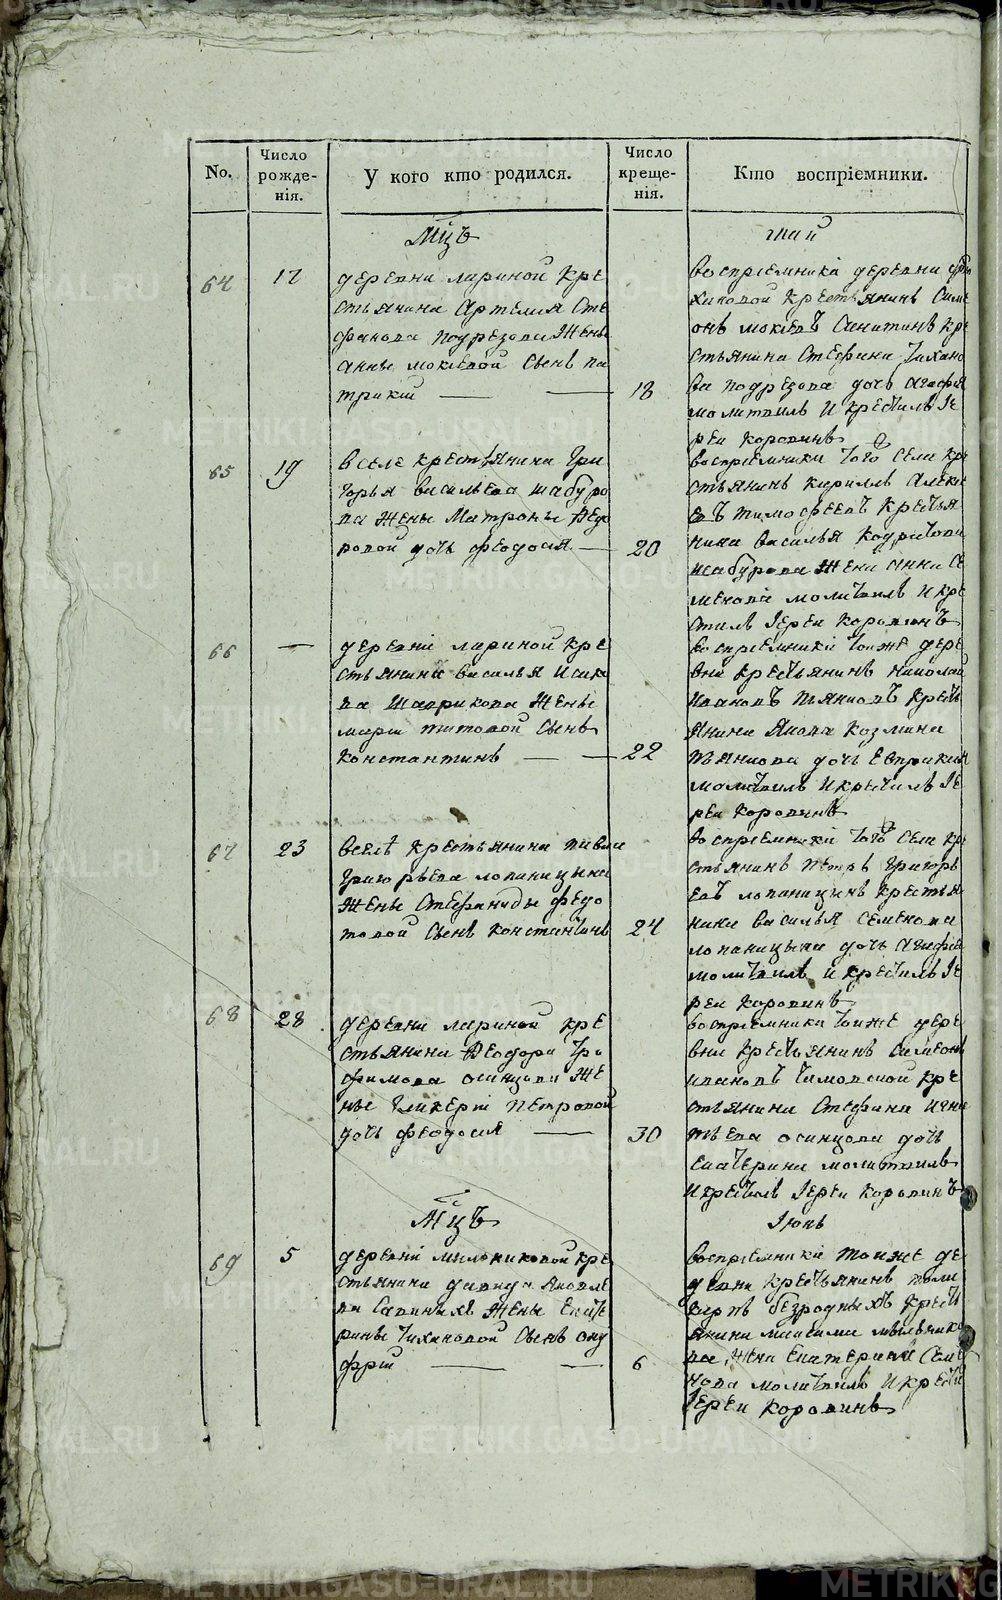 No.
Число рожде-нія.
У кого кто родился.
Число креще-нія.
Кто воспріемники.
Мцъ
маій
64
17
деревни лариной кре
стьянина Артемия Сте
фанова подрезова жены
анны мокиевой сынъ па
трикий
18
воспріемники деревни
хиновой крестьянинъ Симе
онъ мокіевъ Санитинъ кре
стьянина Стефана тихано
ва подрезова дочь агафія
молитвилъ и крестилъ іе
реи коровинъ
65
19
в селе крестьянина гри
горья васильева шабуро
ва жены Матроны Федо
ровой дочь феодосия
20
воспріемники того села кре
стьянинъ кириллъ Алекс
евъ тимофеевъ крестья
нина василья
шабурова жена анна Се
менова молитвилъ и кре
стилъ іереи коровинъ
66
деревни лариной кре
стьянина василья Исака
ва Шаврикова жены
марии титовой сынъ
константинъ
22
воспріемники тоиже дере
вни крестьянинъ николай
ивановъ пьянковъ кресть
янина Якова козмина
пьянкова дочь Евпраксия
молитвилъ и крестилъ іе
реи коровинъ
67
23
в селе крестьянина павла
григорьева лопаницына
жены Стефаниды федо
товой сынъ константинъ
24
воспріемники того села кре
стьянинъ петръ григорь
евъ лопаницинъ крестья
нина василья семенова
лопаницына дочь агафия
молитвилъ и крестилъ іе
реи коровинъ
68
28
деревни лариной кре
стьянина Феодора тро
фимова осинцова же
ны гликерии петровой
дочь феодосия
30
воспріемники тоиже дере
вни крестьянинъ Симеонъ
ивановъ кре
стьянина Стефана игна
тьева осинцова дочь
екатерина молитвилъ
и крестилъ іереи коровинъ
Мцъ
Іюнь
69
5
деревни мельниковой кре
стьянина давида яковле
ва Савиныхъ жены Екате
рины тихановой сынъ ону
фрий
6
воспріемники тоиже де
ревни крестьянинъ поли
карпъ безродныхъ кресть
янина максима мельнико
ва жена Екатерина Семе
нова молитвилъ и крести
іереи коровинъ
METRIKI.GASO-URAL.RU